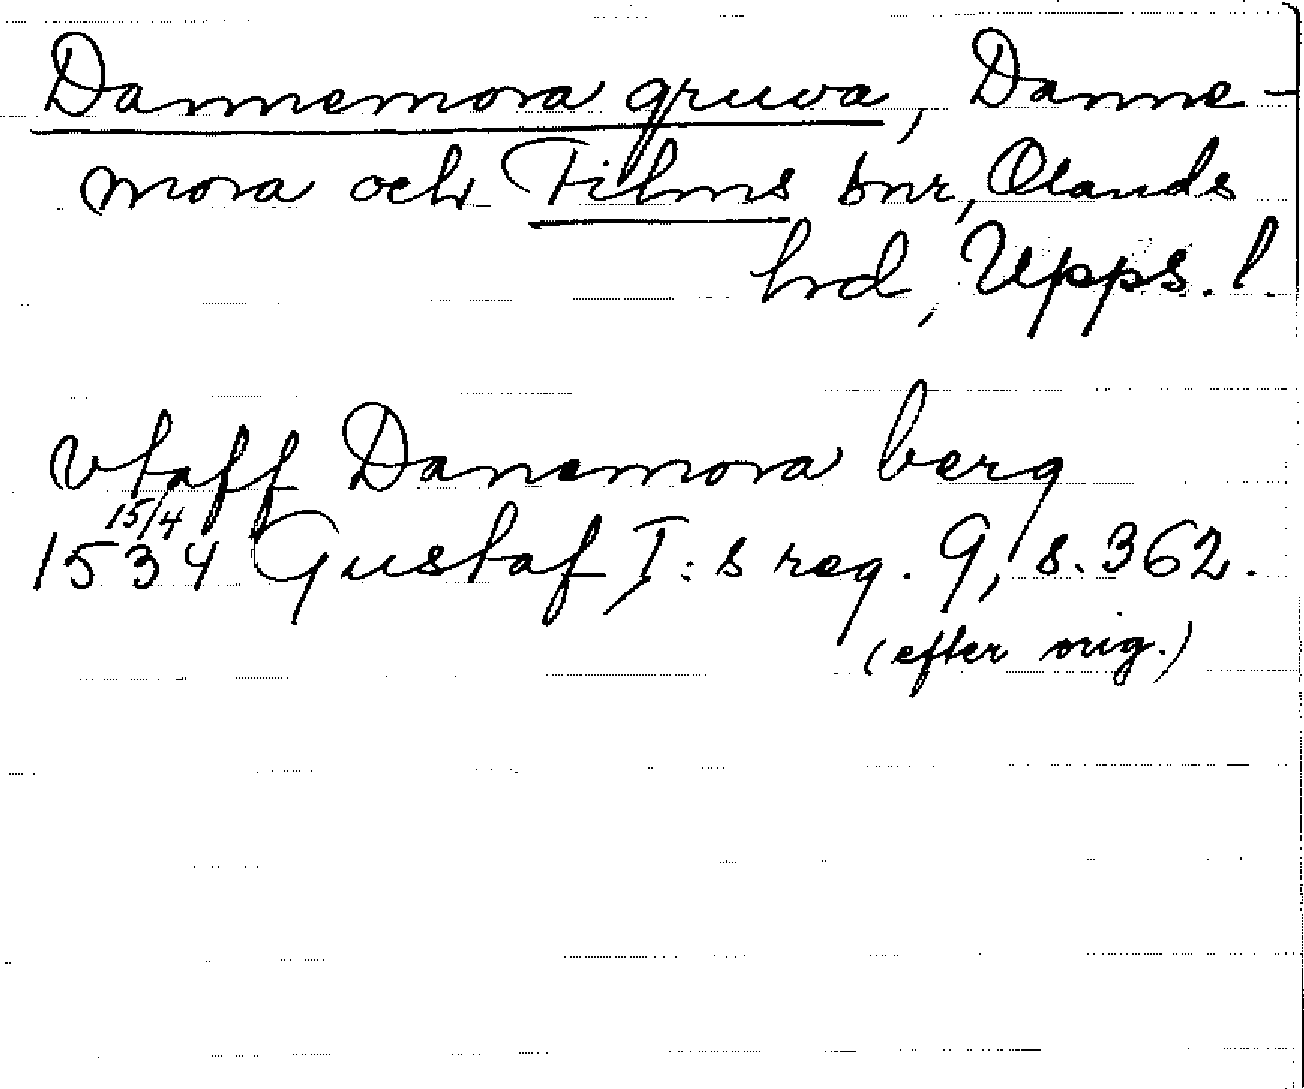 Dannemora gruva, Danne-
mora och Films snr, Olands
hrd, Upps. l.
vtaff Danemora berg
15/4
1534 Gustaf I:s reg. 9, s. 362.
(efter orig.)